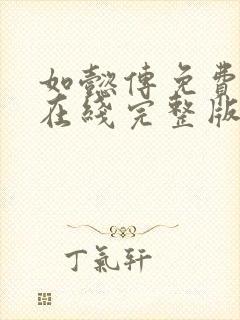 如懿傳免費
在綫完整版
丁氣軒